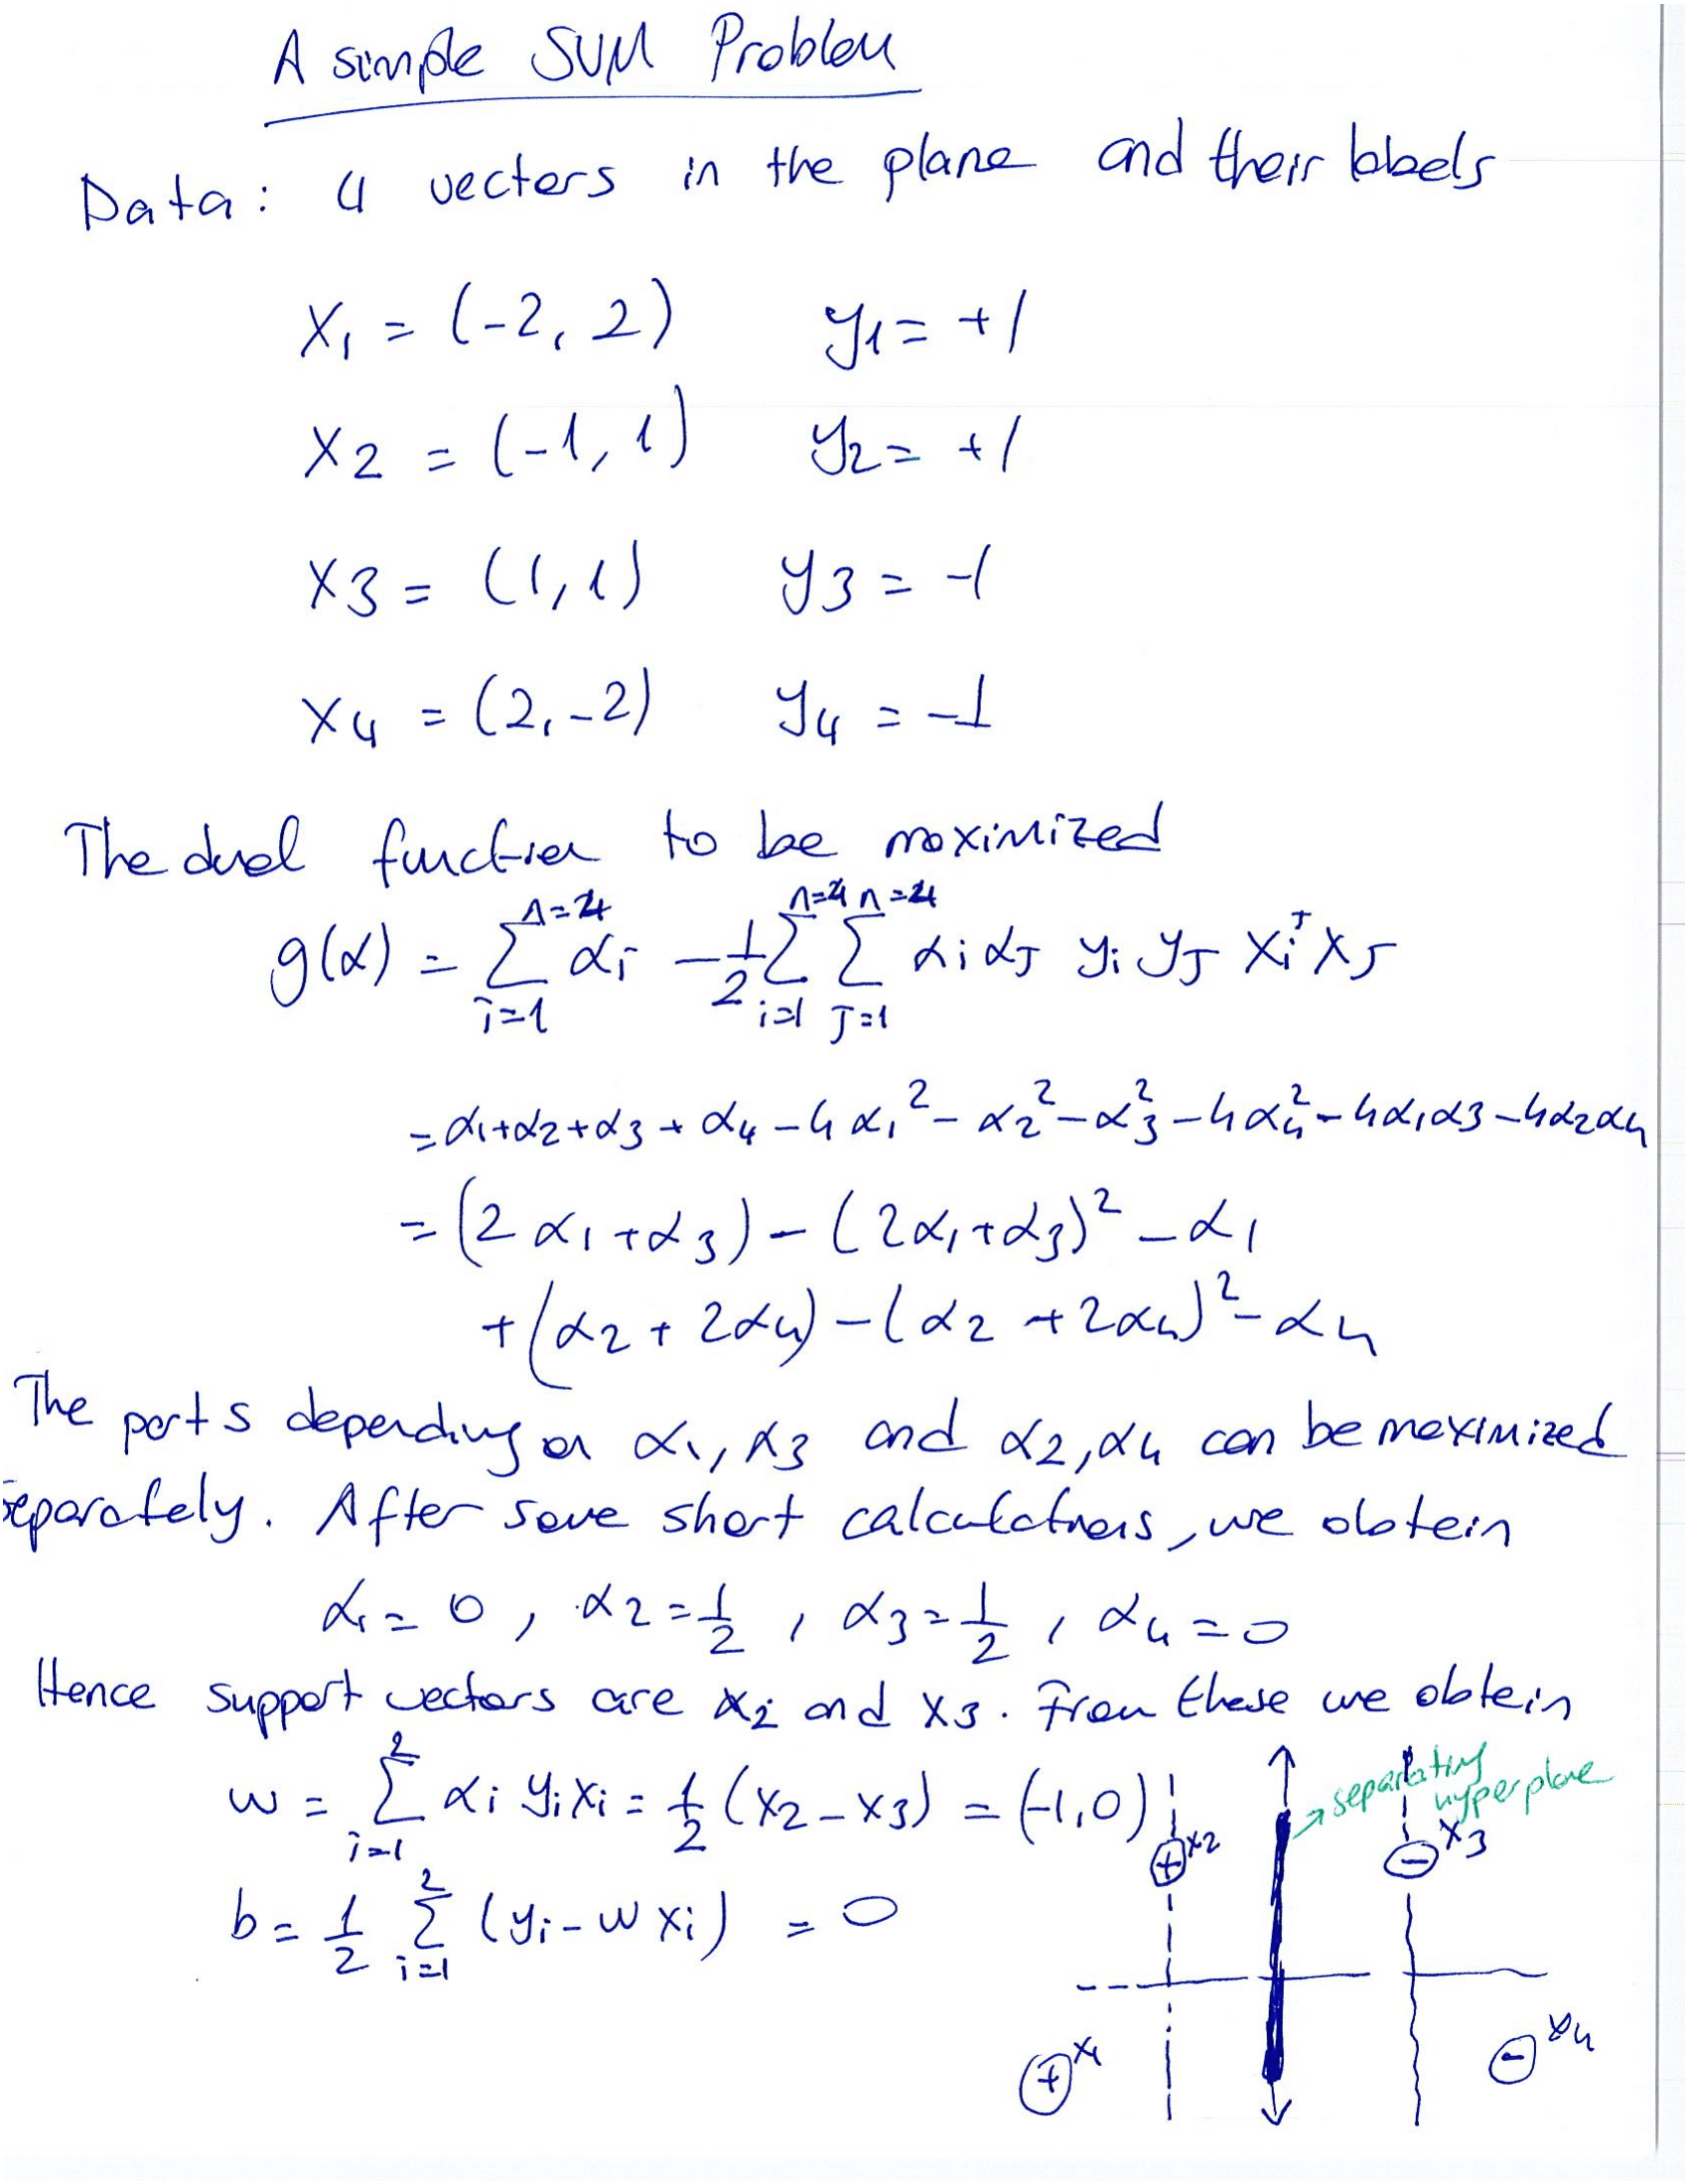 A simple SVM Problem
Data: 4 vectors in the plane and their labels
x₁ = (-2, 2) y₁ = +1
x₂ = (-1, 1) y₂ = +1
x₃ = (1, 1) y₃ = -1
x₄ = (2, -2) y₄ = -1
The dual function to be maximized
g(α) = ∑_{i=1}^{n=4} αᵢ - 1/2 ∑_{i=1}^{n=4} ∑_{J=1}^{n=4} αᵢ α_J yᵢ y_J xᵢᵀ x_J
= α₁+α₂+α₃+α₄ - 4α₁² - α₂² - α₃² - 4α₄² - 4α₁α₃ - 4α₂α₄
= (2α₁+α₃) - (2α₁+α₃)² - α₁
+ (α₂ + 2α₄) - (α₂ + 2α₄)² - α₄
The parts depending on α₁, α₃ and α₂, α₄ can be maximized
separately. After some short calculations, we obtain
α₁ = 0, α₂ = 1/2, α₃ = 1/2, α₄ = 0
Hence support vectors are x₂ and x₃. From these we obtain
w = ∑_{i=1}^{2} αᵢ yᵢ xᵢ = 1/2 (x₂ - x₃) = (-1, 0)
b = 1/2 ∑_{i=1}^{2} (yᵢ - w xᵢ) = 0
separating
hyperplane
+ x₂
- x₃
+ x₁
- x₄